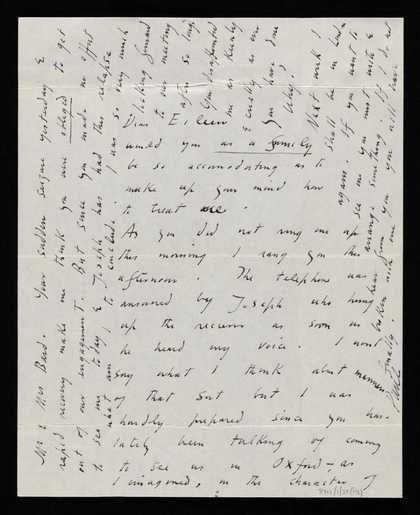 Dear Eileen
would you as a family
be so accomodating as to
make up your mind how
to treat me.
As you did not ring me up
this morning I rang you this
afternoon. The telephone was
answered by Joseph who hung
up the receiver as soon as
he heard my voice. I won't
say what I think about manners
of that sort but I was
hardly prepared since you have
lately been talking of coming
to see us in Oxford – as
I imagined, in the character of
Mr & Mrs Bard. Your sudden seizure yesterday &
rapid recovery make me think you were obliged to get
out of our engagement. But since you made no effort
to see me to-day & Joseph has had this relapse
what am I to conclude. I was so very much
looking forward
to our meeting
after so long.
You disappointed
me as keenly
& cruelly as one
can have done
Why?
Next week I
shall be in London
again. If you want to
see me you must write &
arrange something. If I do not
hear from you you will have
broken with me
finally.